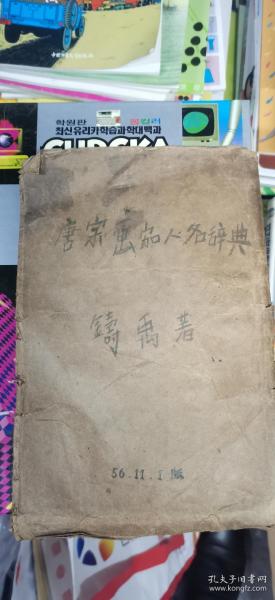 학원판
컬러
최신 유리카 학습과학대백과
唐宋画家人名辞典
鑄禹著
56.11.1版
孔夫子旧书网